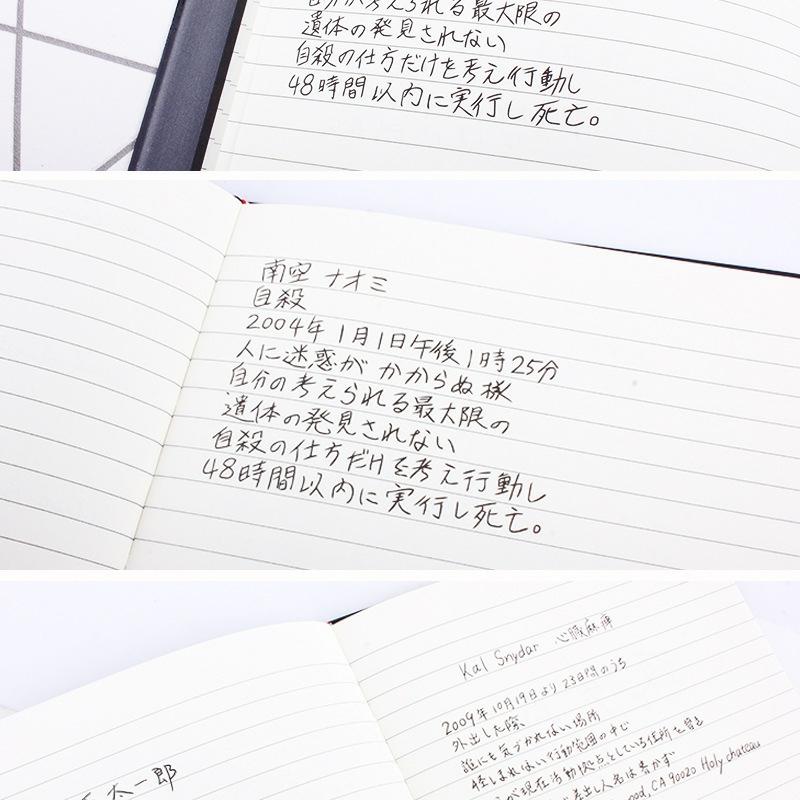 自分の考えられる最大限の
遺体の発見されない
自殺の仕方だけを考え行動し
48時間以内に実行し死亡。
南空 ナオミ
自殺
2004年1月1日午後1時25分
人に迷惑がかからぬ様
自分の考えられる最大限の
遺体の発見されない
自殺の仕方だけを考え行動し
48時間以内に実行し死亡。
太一郎
Kal Snydar 心臓麻痺
2009年10月19日より23日間のうち
外出した際、
誰にも気づかれない場所
怪しまれない行動範囲の中で
が現在活動拠点としている住所を書き
差出し人名は書かず
ood, CA 90020 Holy chateau